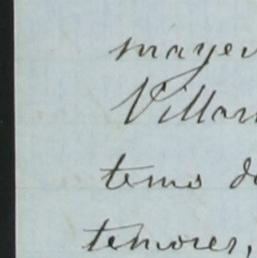 mayer
Villar
tems d
temores,